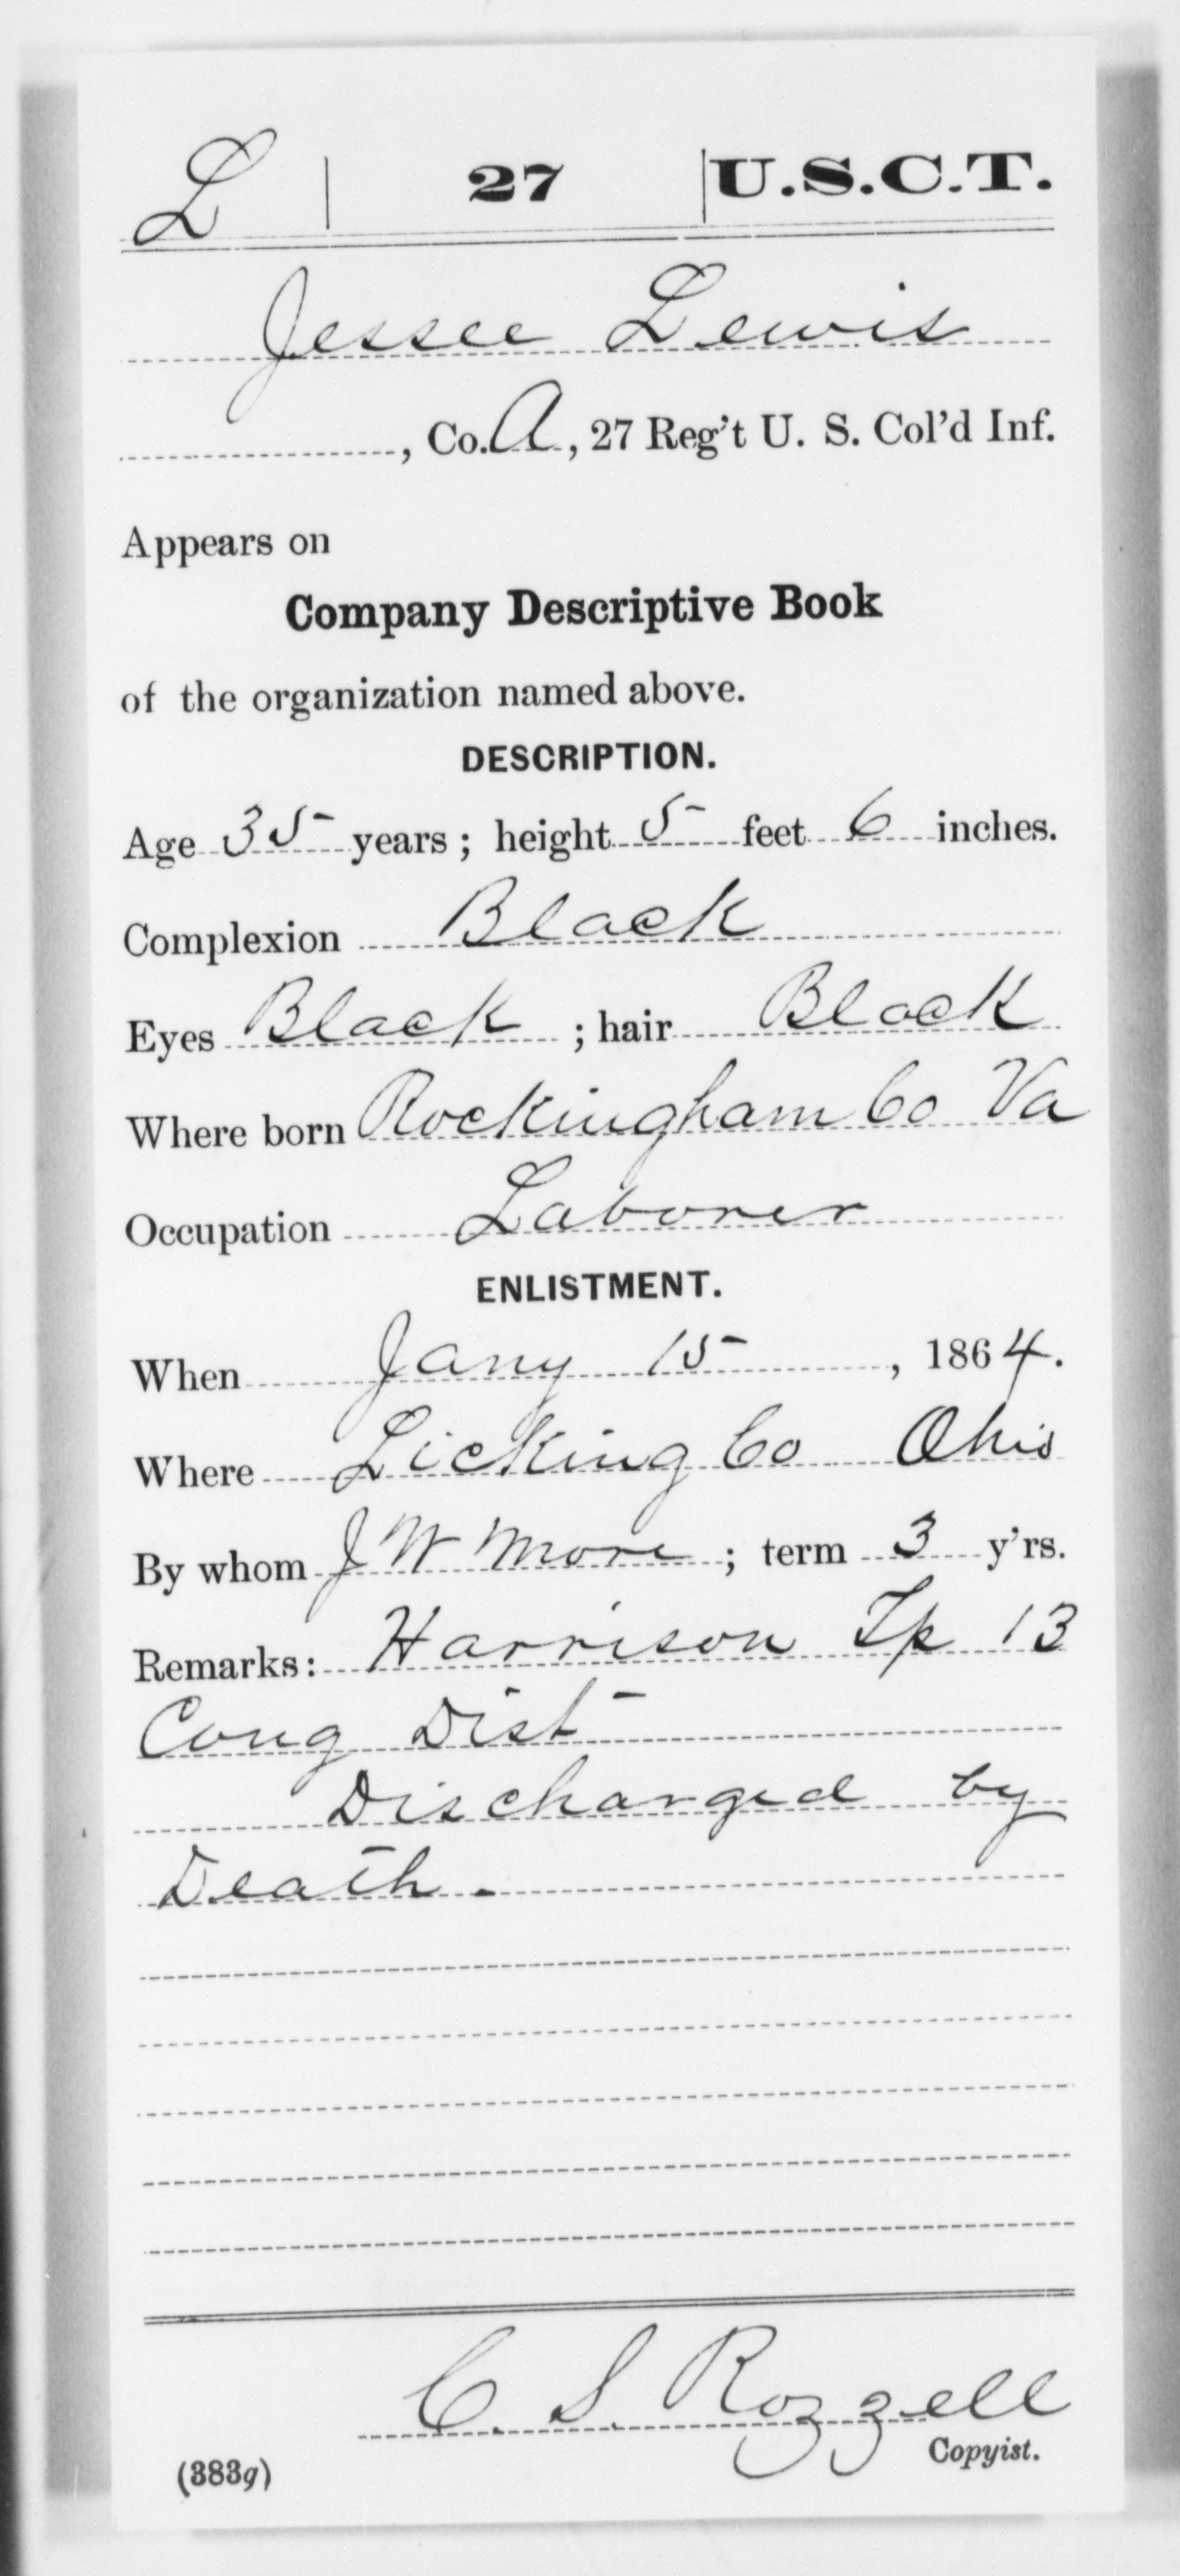 L | 27 | U.S.C.T.
Jessee Lewis
, Co. A, 27 Reg't U. S. Col'd Inf.
Appears on
Company Descriptive Book
of the organization named above.
DESCRIPTION.
Age 35 years; height 5 feet 6 inches.
Complexion Black
Eyes Black; hair Black
Where born Rockingham Co Va
Occupation Laborer
ENLISTMENT.
When Jany 15, 1864.
Where Licking Co Ohio
By whom J W More; term 3 y'rs.
Remarks: Harrison Tp 13
Cong Dist
Discharged by
Death.
C. S. Rozzell
Copyist.
(383g)